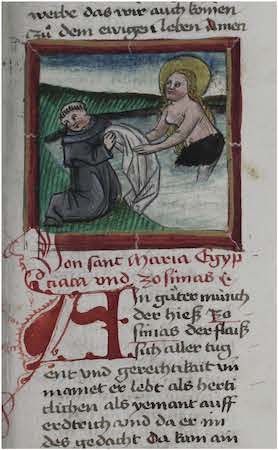 werbe das wir auch komen
zů dem ewigen leben Amen
Von sant Maria Egyp
ciaca vnd zosimas ꝛc
AIn gůter münch
der hieß Zo
simas der flaiß
sich aller tug
ent vnd gerechtikait vn
mainet er lebt als herti
klichen als yemant auff
erdtrich vnd da er im
des gedacht Da kam ain